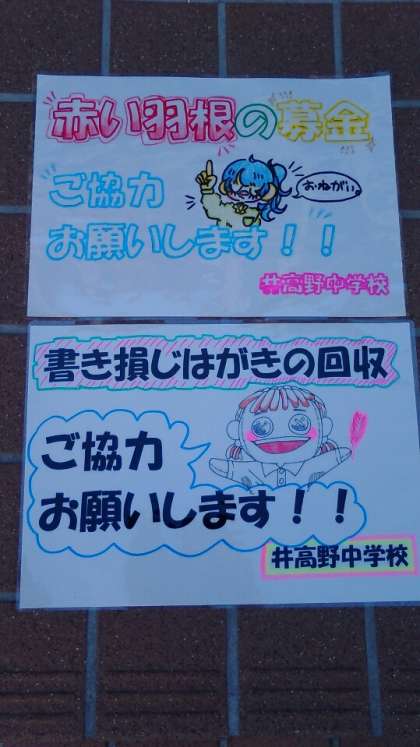 赤い羽根の募金
ご協力
おねがい。
お願いします！！
井高野中学校
書き損じはがきの回収
ご協力
お願いします！！
井高野中学校